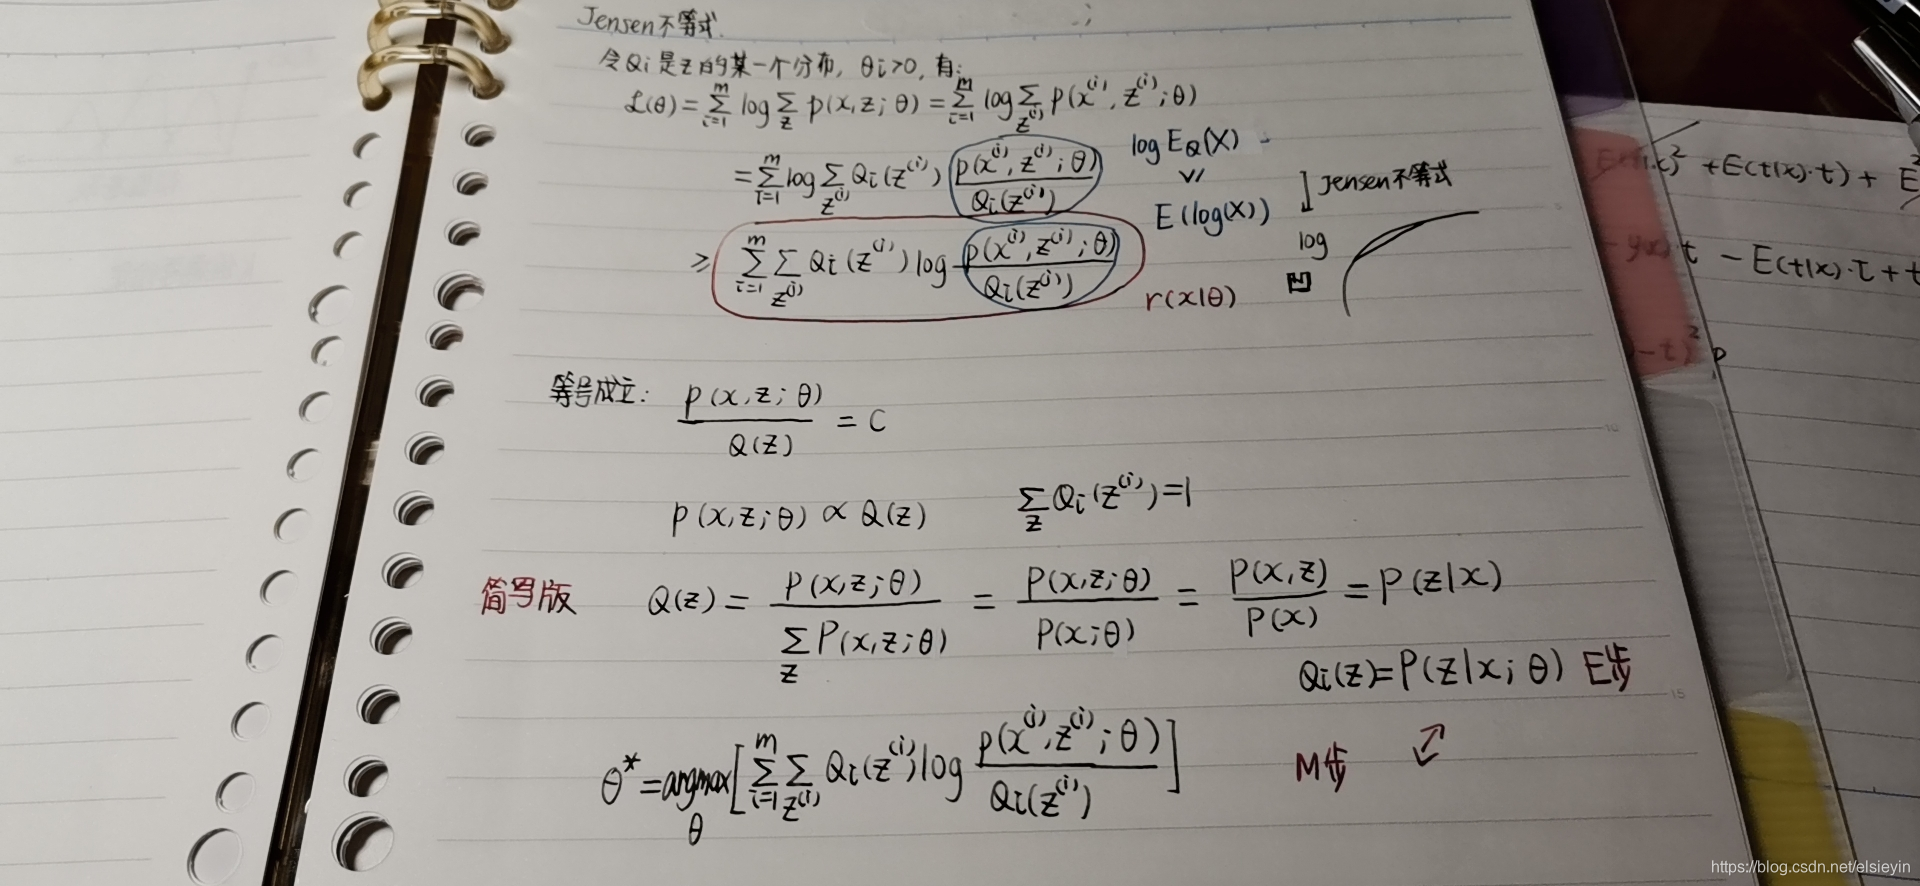 Jensen不等式.
令Qi是z的某一个分布, θi>0, 有:
L(θ) = ∑_{i=1}^{m} log ∑_{z} p(x,z;θ) = ∑_{i=1}^{m} log ∑_{z^{(i)}} p(x^{(i)}, z^{(i)};θ)
= ∑_{i=1}^{m} log ∑_{z^{(i)}} Qi(z^{(i)}) p(x^{(i)}, z^{(i)};θ) / Qi(z^{(i)})
log E_Q(X)
≥ ∑_{i=1}^{m} ∑_{z^{(i)}} Qi(z^{(i)}) log p(x^{(i)}, z^{(i)};θ) / Qi(z^{(i)})
E(log(X))
r(x|θ)
Jensen不等式
log
凹
等号成立: p(x,z;θ) / Q(z) = C
p(x,z;θ) ∝ Q(z) ∑_{z} Qi(z^{(i)})=1
简写版 Q(z) = p(x,z;θ) / ∑_{z} P(x,z;θ) = P(x,z;θ) / P(x;θ) = P(x,z) / P(x) = P(z|x)
Qi(z)=P(z|x;θ) E步
θ* = argmax_{θ} [∑_{i=1}^{m} ∑_{z^{(i)}} Qi(z^{(i)}) log p(x^{(i)}, z^{(i)};θ) / Qi(z^{(i)})] M步
+E(t|x)·t) +
t - E(t|x)·t + t
https://blog.csdn.net/elsieyin